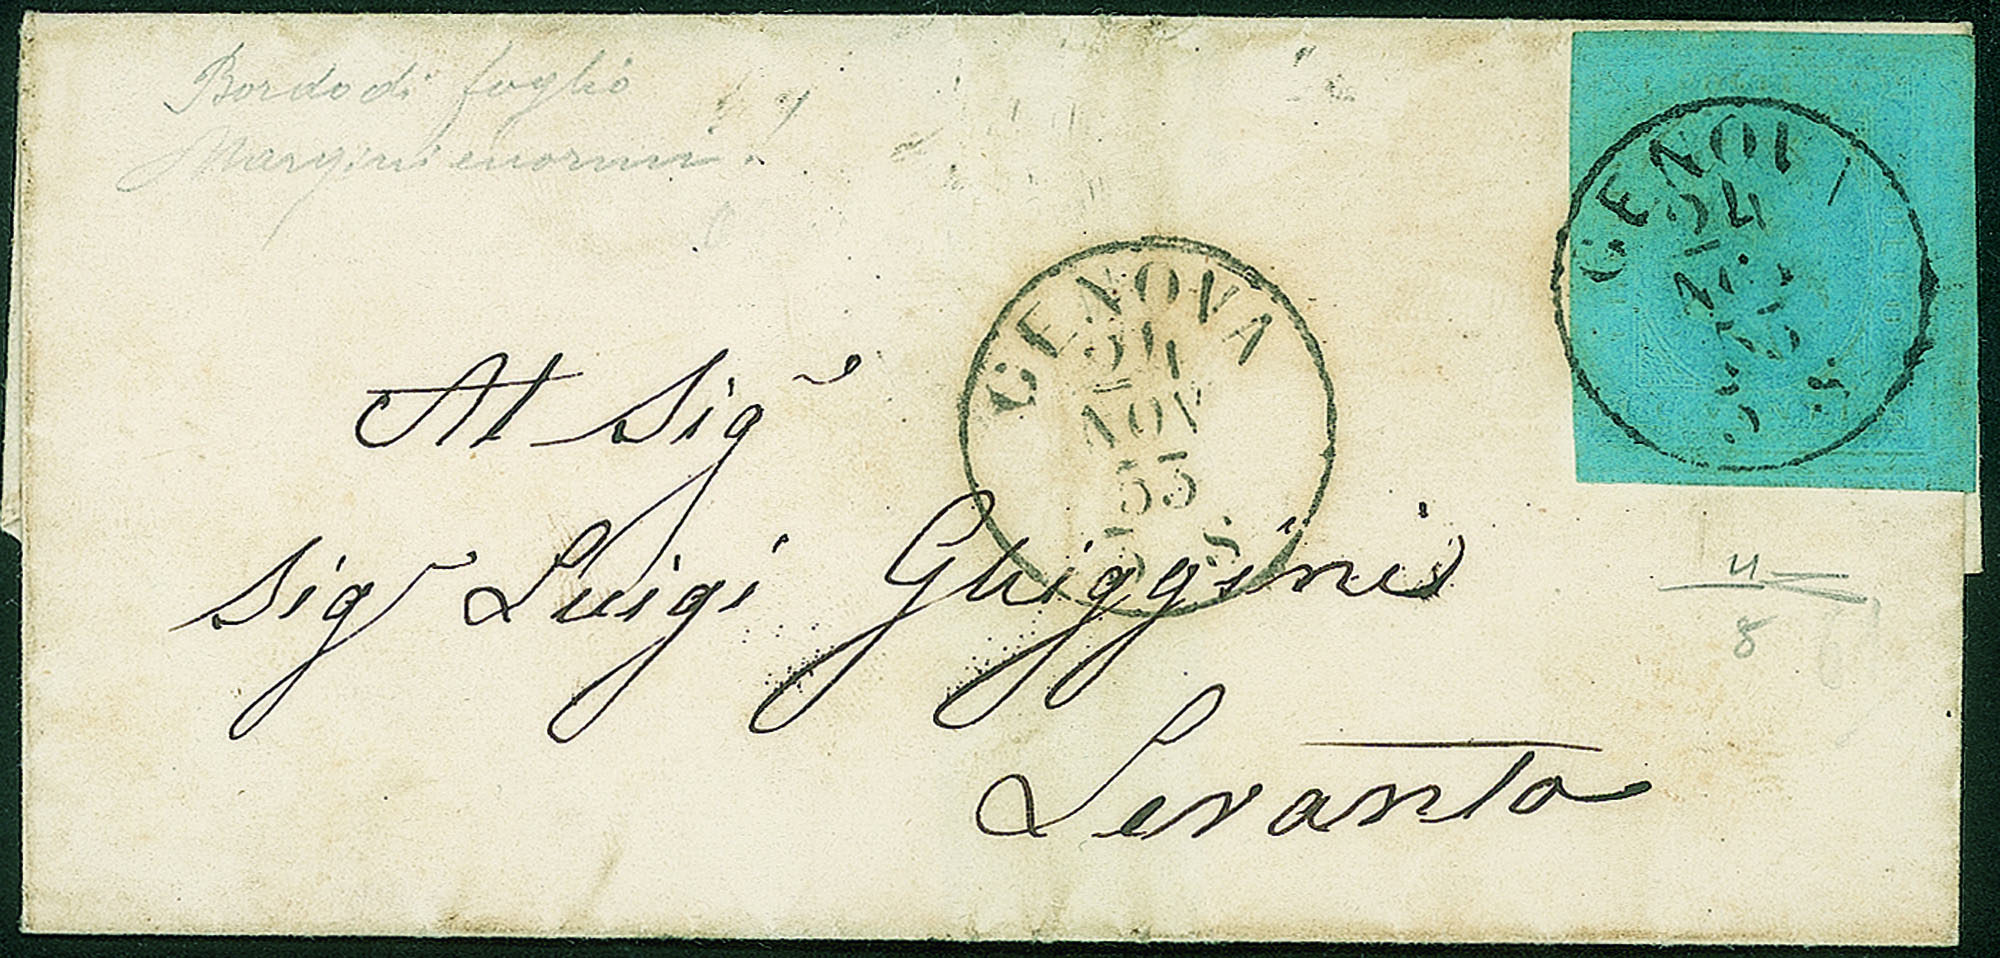 Bordo di foglio
Margini enormi.
GENOVA
24
NOV
53
5 S
GENOV
24
NOV
53
5 S
Al Sigr
Sigr Luigi Ghiggini
Levanto
8